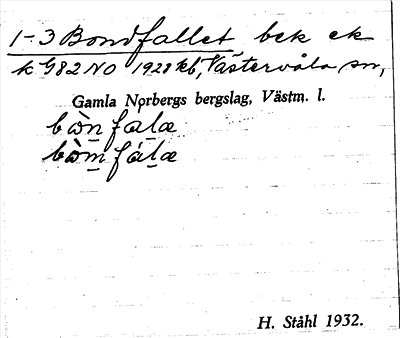 1-3 Bondfallet bek ek
k G82 NO 1928 kb, Västervåla sn,
Gamla Norbergs bergslag, Västm. l.
bòn̲ fál̲æ
bòm̲ fál̲æ
H. Ståhl 1932.